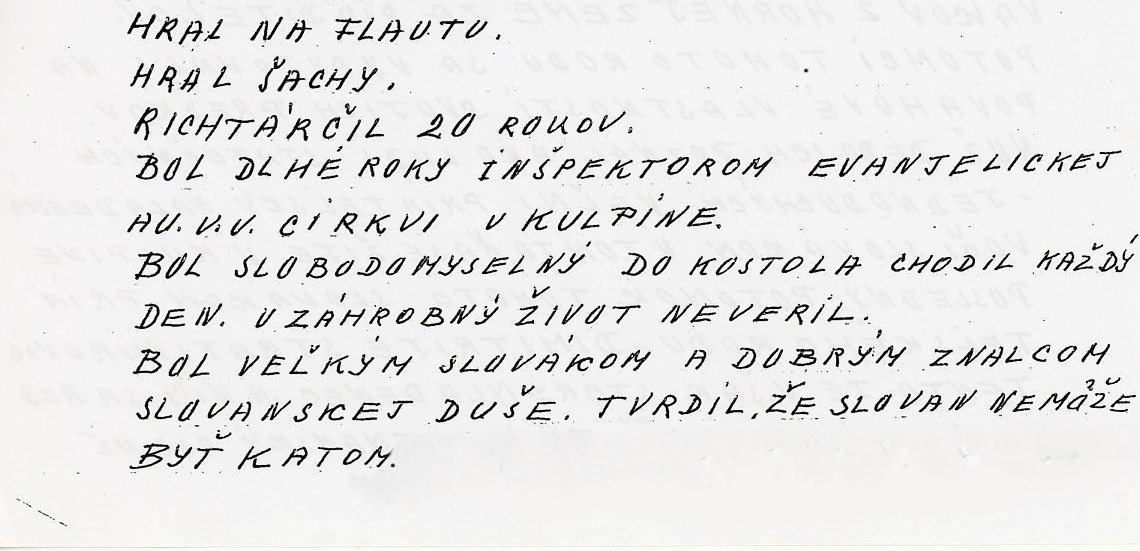 HRAL NA FLAUTU.
HRAL ŠACHY.
RICHTÁRČIL 20 ROKOV.
BOL DLHÉ ROKY INŠPEKTOROM EVANJELICKEJ
AU.V.V. CIRKVI V KULPÍNE.
BOL SLOBODOMYSELNÝ DO KOSTOLA CHODIL KAŽDÝ
DEN. V ZÁHROBNÝ ŽIVOT NEVERIL.
BOL VEĽKÝM SLOVÁKOM A DOBRÝM ZNALCOM
SLOVANSKEJ DUŠE. TVRDIL, ŽE SLOVAN NEMÔŽE
BYŤ KATOM.